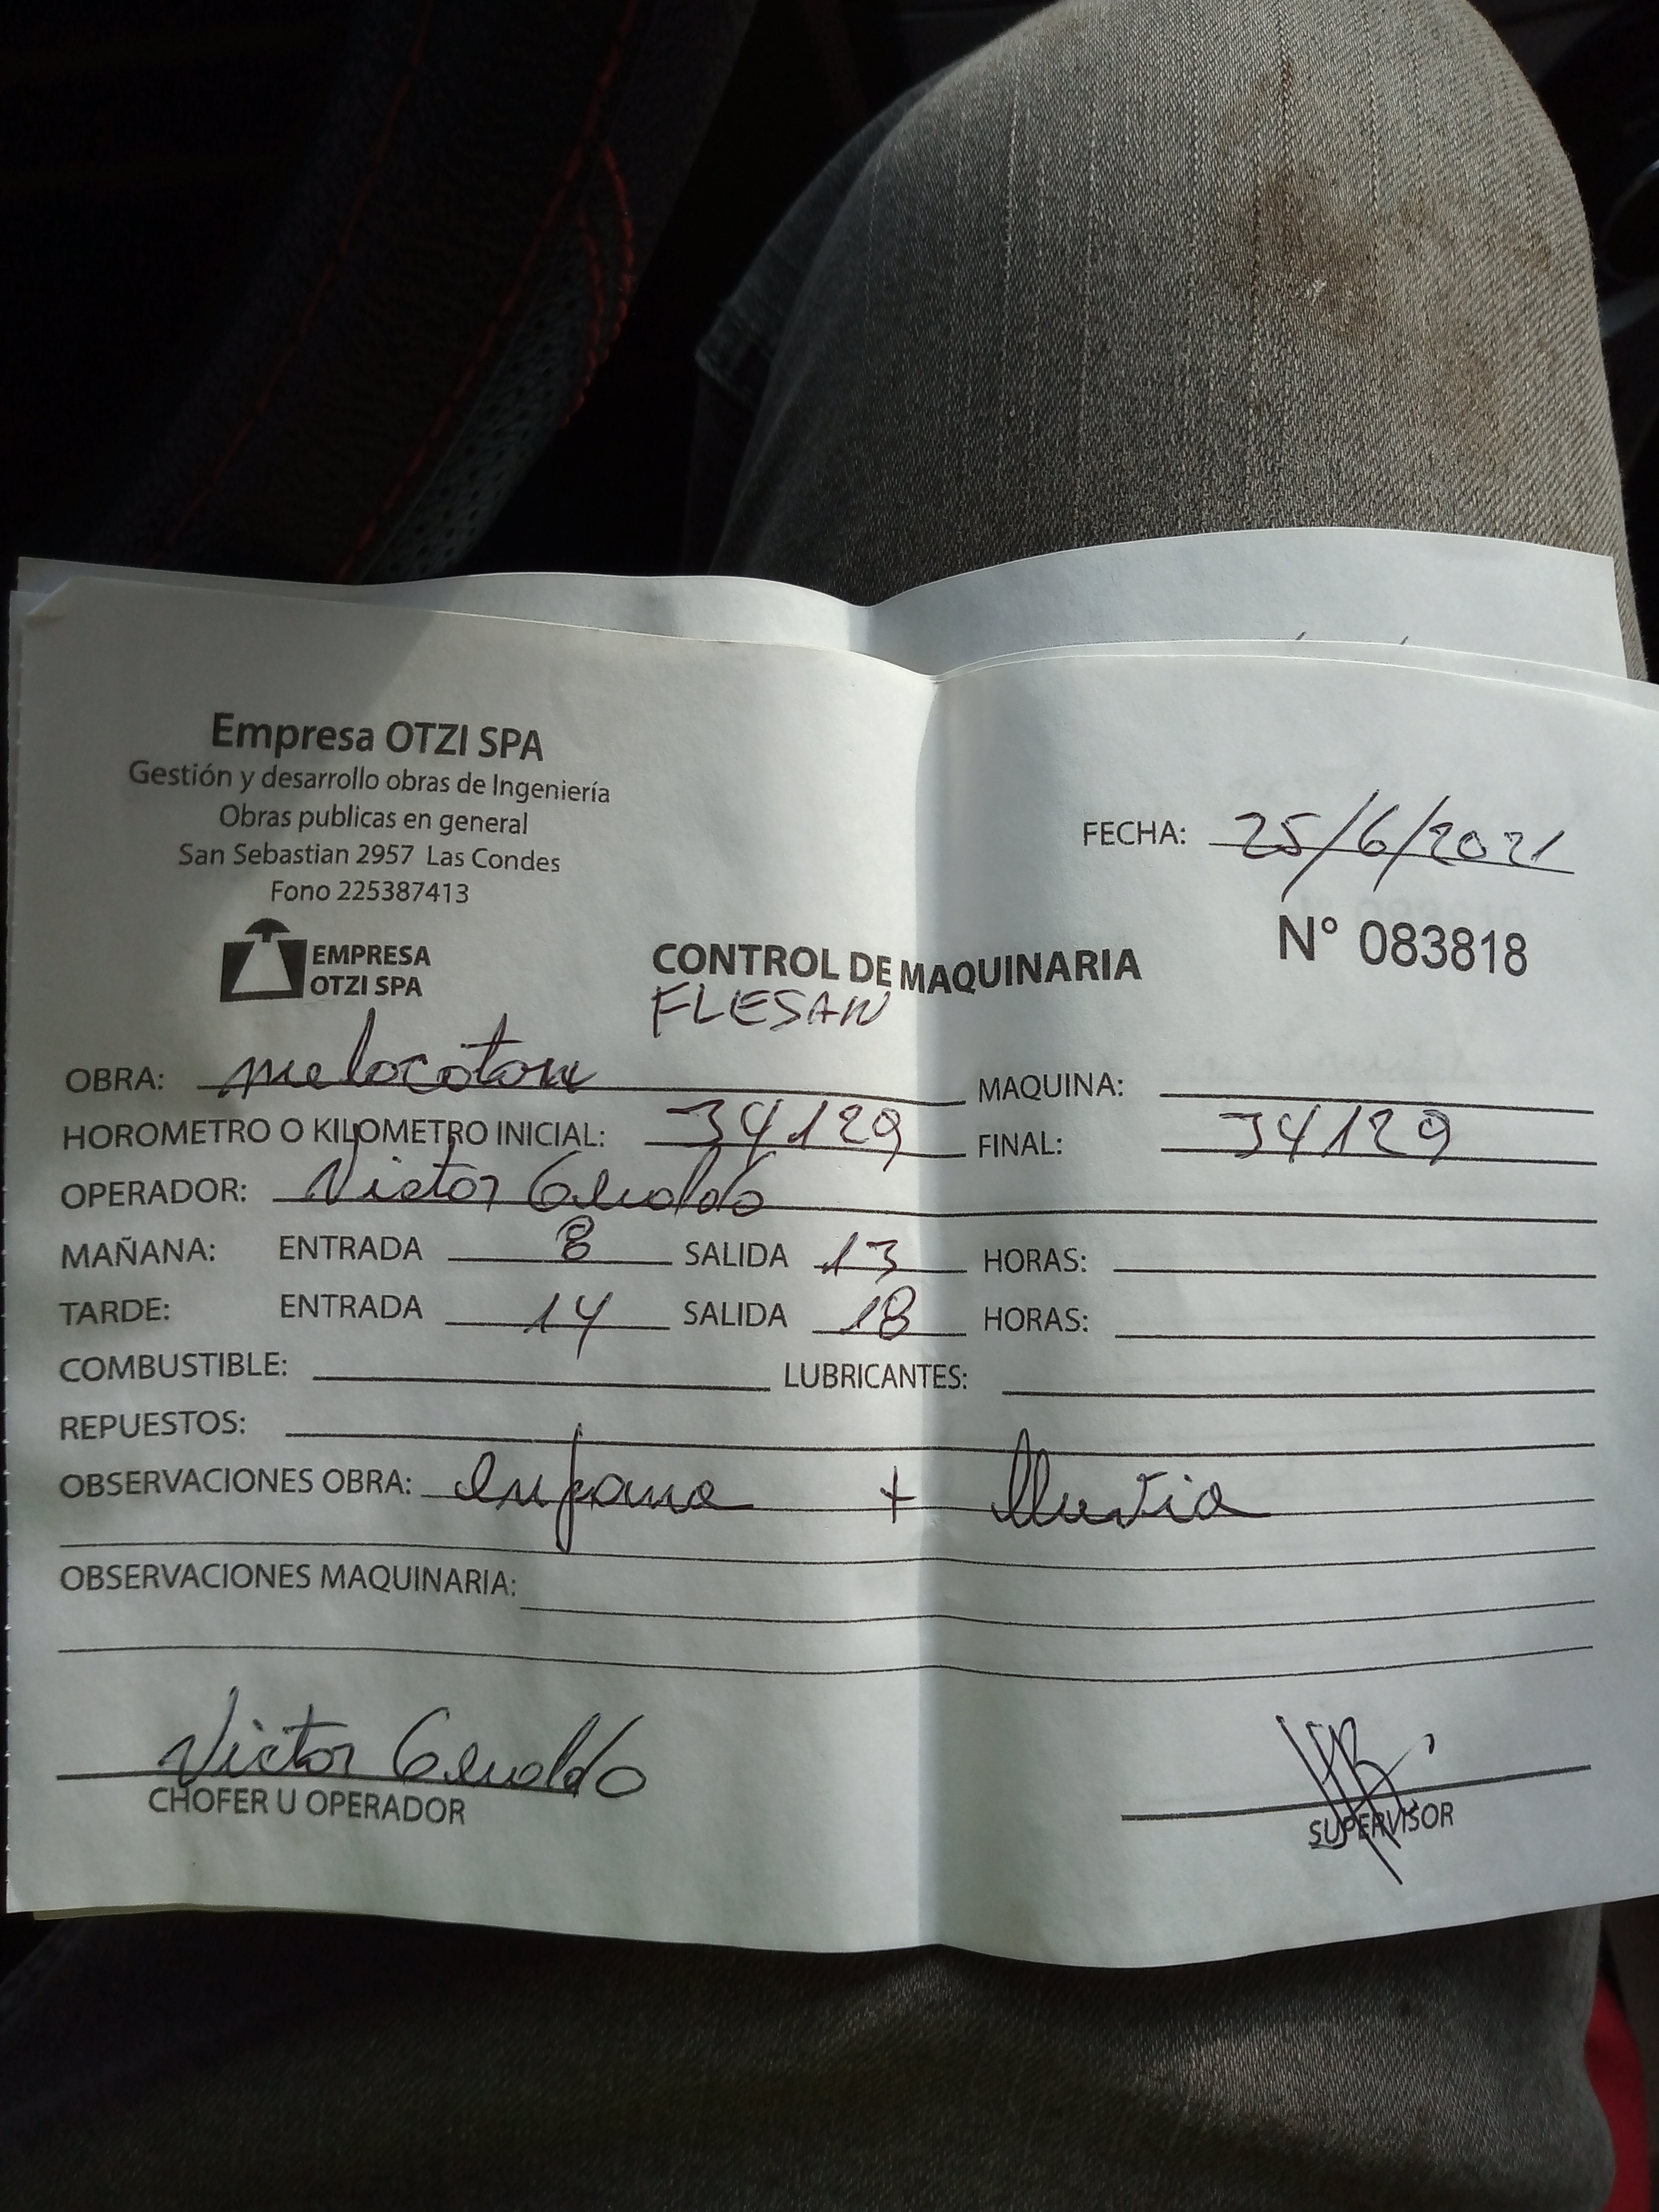 Empresa OTZI SPA
Gestión y desarrollo obras de Ingeniería
Obras publicas en general
San Sebastian 2957 Las Condes
Fono 225387413
EMPRESA
OTZI SPA
FECHA: 25/6/2021
N° 083818
CONTROL DE MAQUINARIA
FLESAN
OBRA: melocoton MAQUINA:
HOROMETRO O KILOMETRO INICIAL: 34129 FINAL: 34129
OPERADOR: Victor
MAÑANA: ENTRADA 8 SALIDA 13 HORAS:
TARDE: ENTRADA 14 SALIDA 18 HORAS:
COMBUSTIBLE: LUBRICANTES:
REPUESTOS:
OBSERVACIONES OBRA: + lluvia
OBSERVACIONES MAQUINARIA:
Victor
CHOFER U OPERADOR
SUPERVISOR